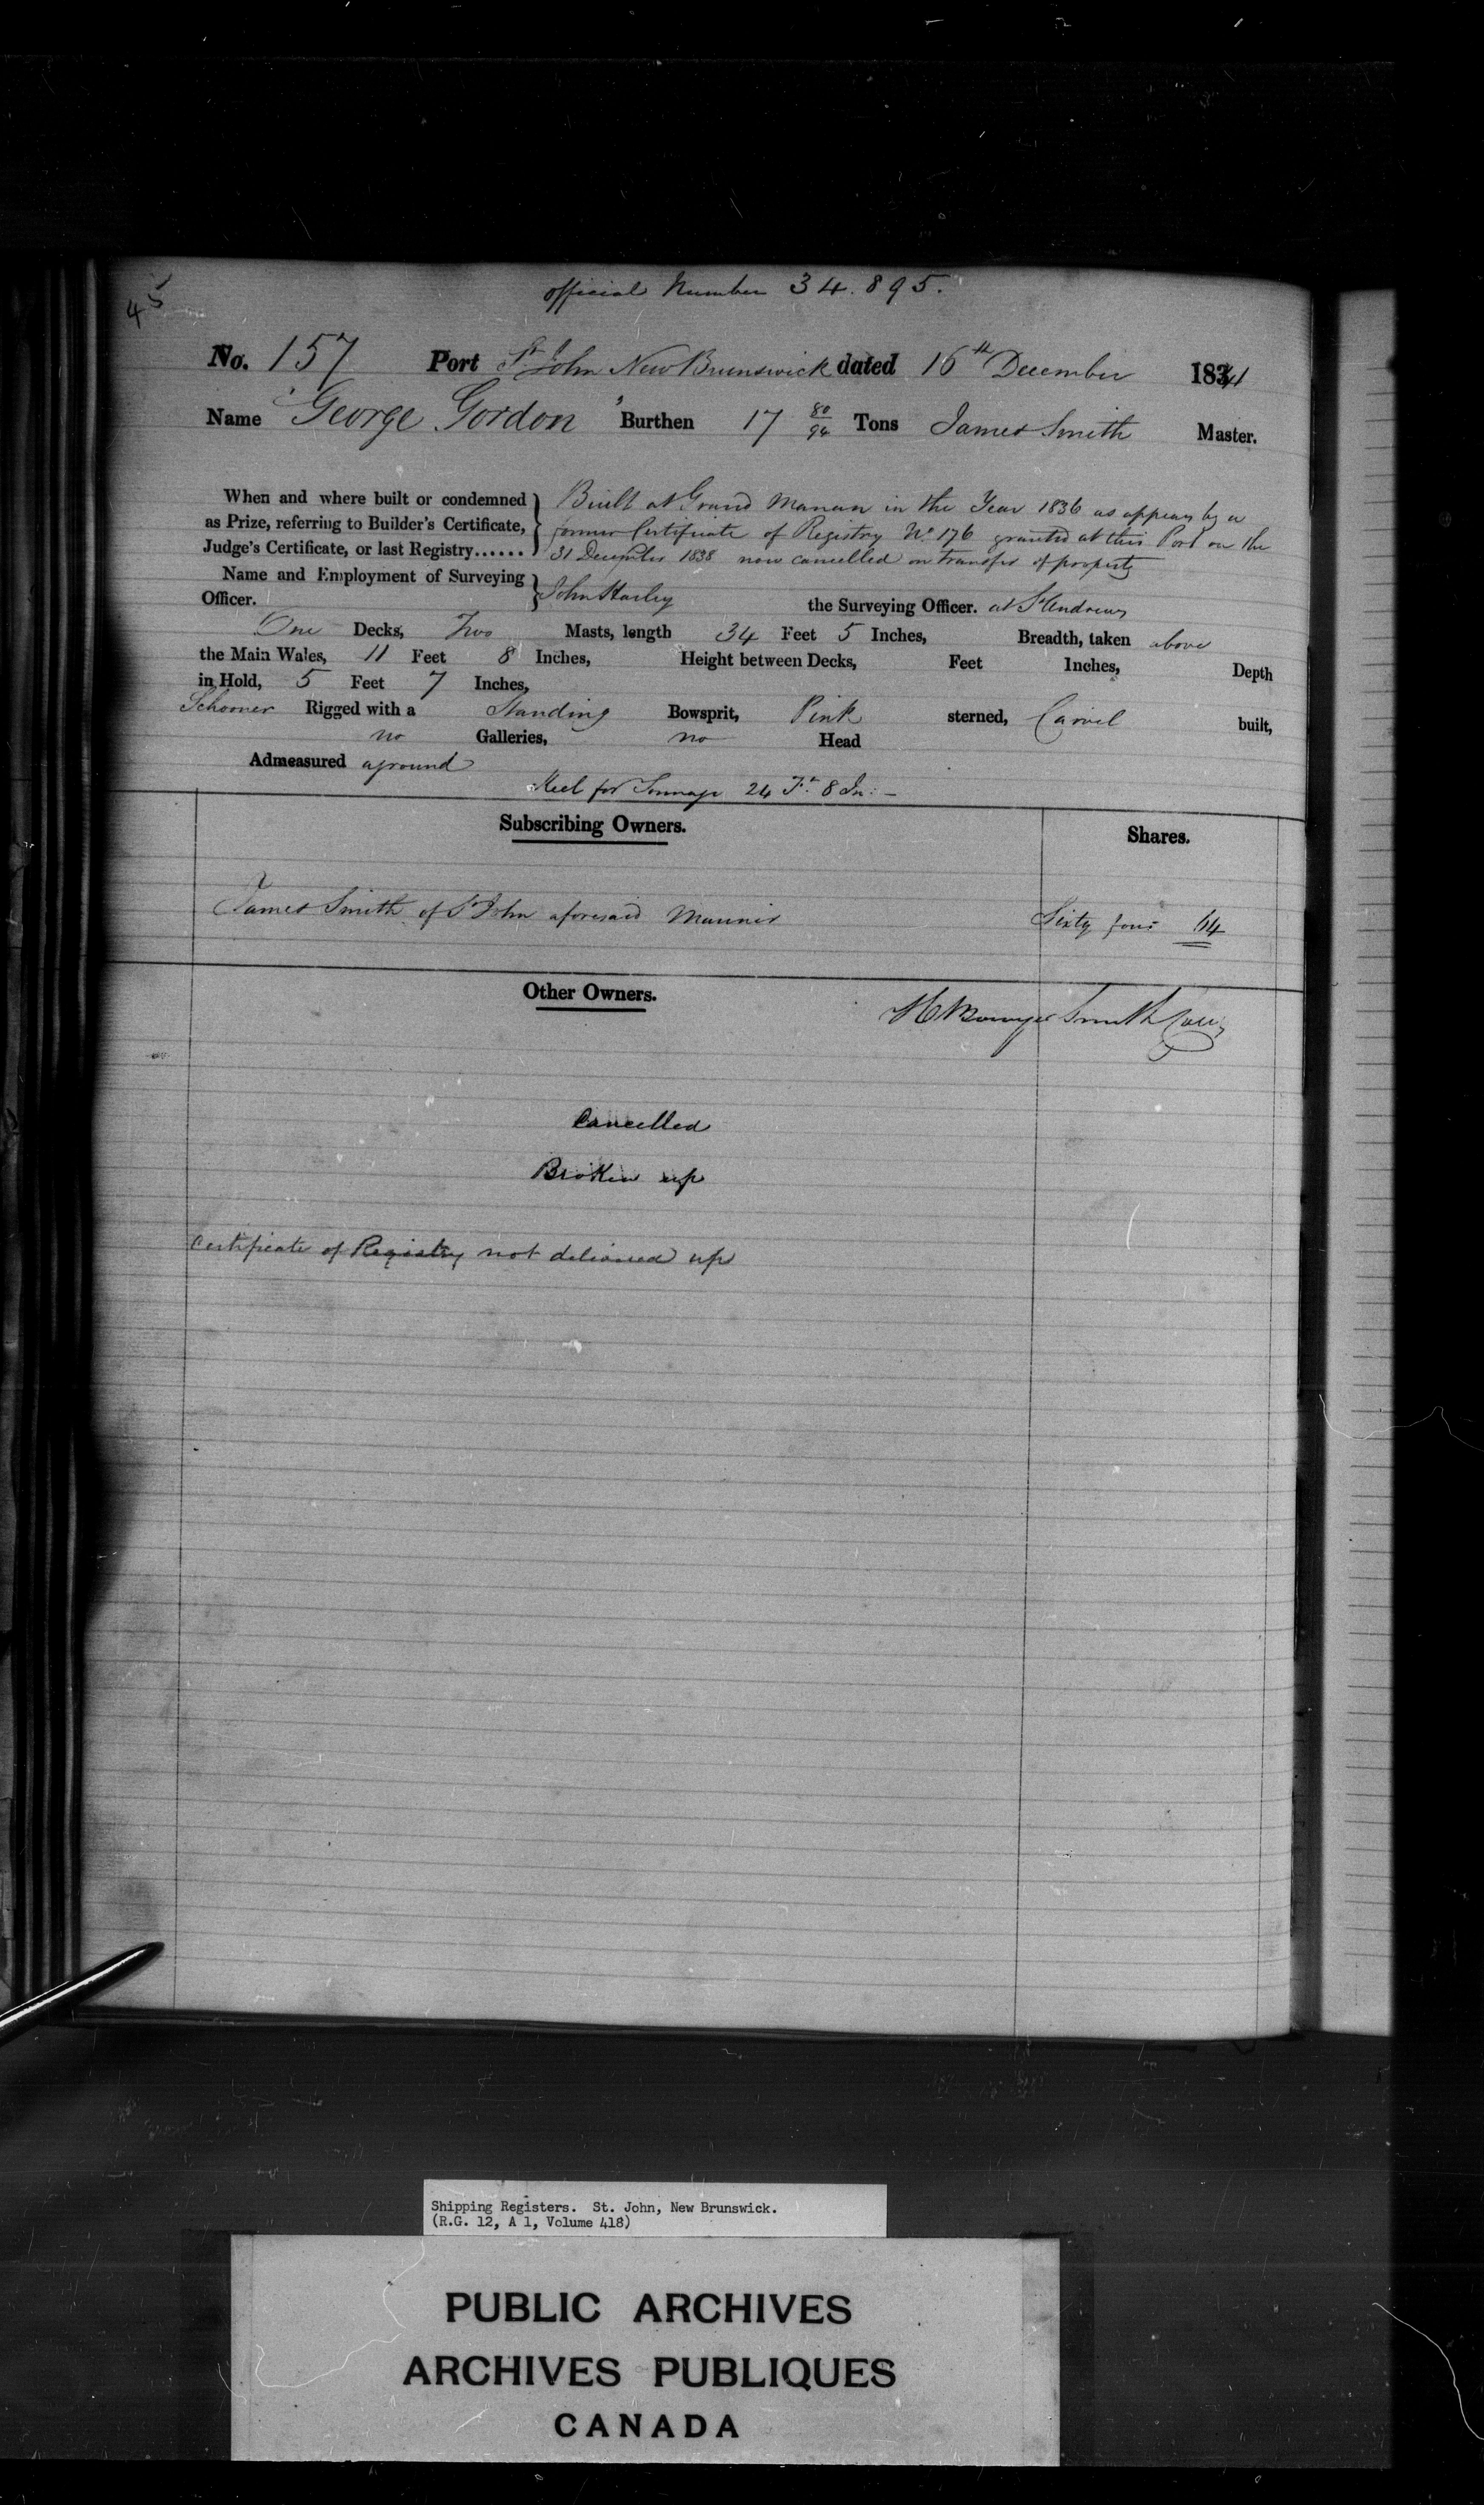 45
official Number 34.895.
No. 157 Port St John New Brunswick dated 16th December 1841
Name "George Gordon" Burthen 17 80/94 Tons James Smith Master.
When and where built or condemned as Prize, referring to Builder's Certificate, Judge's Certificate, or last Registry......
Built at Grand Manan in the Year 1836 as appears by a
former Certificate of Registry No 176 granted at this Port on the
31 December 1838 now cancelled on transfer of property
Name and Employment of Surveying Officer. John Harley the Surveying Officer. at St Andrews
One Decks, Two Masts, length 34 Feet 5 Inches, Breadth, taken above
the Main Wales, 11 Feet 8 Inches, Height between Decks, Feet Inches, Depth
in Hold, 5 Feet 7 Inches,
Schooner Rigged with a Standing Bowsprit, Pink sterned, Carvel built,
no Galleries, no Head
Admeasured aground
Keel for Tonnage 24 Ft 8 In: –
Subscribing Owners. Shares.
James Smith of St John aforesaid Mariner Sixty four 64
Other Owners.
H Bowyer Smith Coll
Cancelled
Broken up
Certificate of Registry not delivered up
Shipping Registers. St. John, New Brunswick.
(R.G. 12, A 1, Volume 418)
PUBLIC ARCHIVES
ARCHIVES PUBLIQUES
CANADA